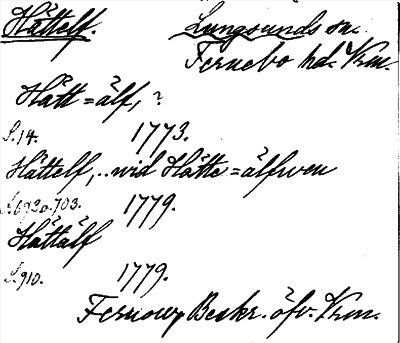 Hättelf. Lungsunds sn.
Fernebo hd. Vrm.
Hätt=älf, ?
S. 14. 1773.
Hättelf, .. wid Hätte=älfwen
S. 693 o. 703. 1779.
Hättälf
S. 910. 1779.
Fernow, Beskr. öfv. Vrm.